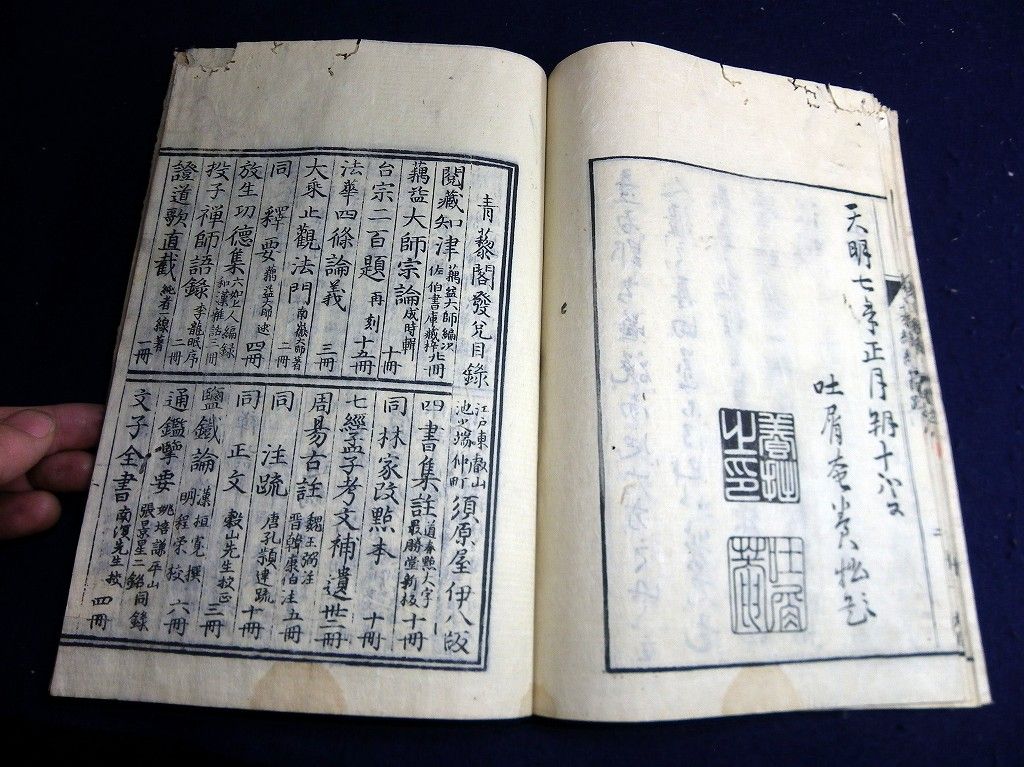 天明七年正月朔十八日
吐屑菴
養拙之印
吐屑菴
青藜閣發兌目錄
閲藏知津 藕益大師編次 佐伯書庫藏梓 廿冊
藕益大師宗論 成時輯 十冊
台宗二百題 再刻 十五冊
法華四條論義 三冊
大乘止觀法門 南嶽大師著 二冊
同釋要 藕益大師述 四冊
放生功德集 六如上人編錄 和漢雜話 三冊
投子禪師語錄 李龍眠序 二冊
證道歌直截 純者一線著 一冊
江戸東叡山池之端仲町 須原屋伊八版
四書集註 道春點人字 最勝堂新板 十冊
同林家改點本 十冊
七經孟子考文補遺 卅二冊
周易古註 魏王弼注 晉韓康伯注 五冊
同注疏 唐孔頴達疏 十冊
同正文 轂山先生校正
鹽鐵論 漢桓寛撰 明程榮校 三冊
通鑑擥要 姚培謙平山 張景星二銘同錄 六冊
文子全書 南溟先生校 四冊